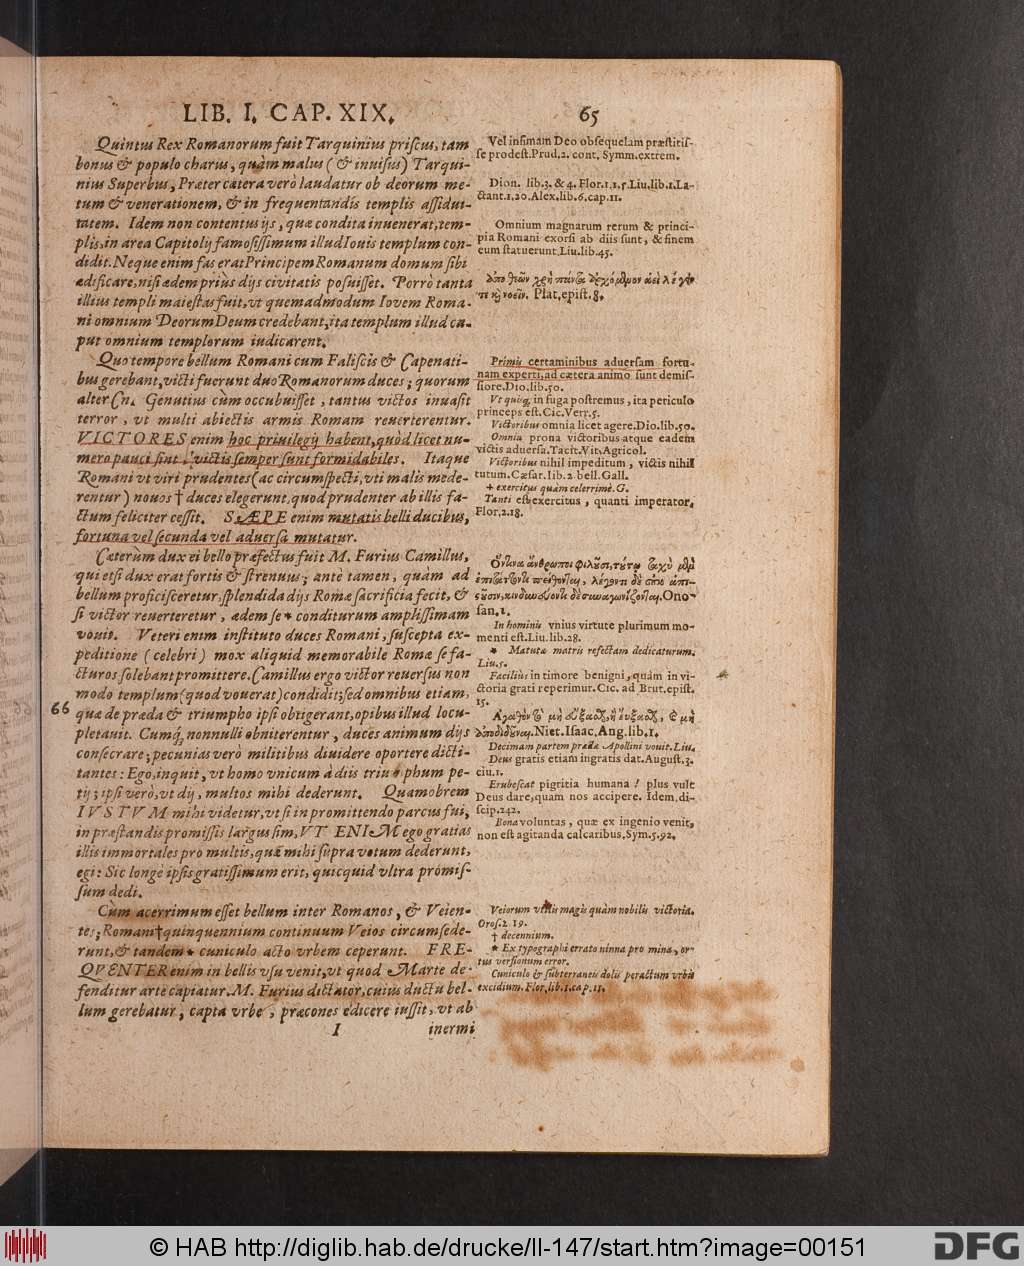 LIB. I. CAP. XIX. 65
Quintus Rex Romanorum fuit Tarquinius priſcus, tam
bonus & populo charus, quàm malus (& inuiſus) Tarqui-
nius Superbus, Præter cætera verò laudatur ob deorum me-
tum & venerationem, & in frequentandis templis aſſidui-
tatem. Idem non contentus ijs, quæ condita inuenerat, tem-
plis, in area Capitolij famoſiſſimum illud Iouis templum con-
didit. Neque enim fas erat Principem Romanum domum ſibi
ædificare, niſi ædem prius dijs civitatis poſuiſſet. Porrò tanta
illius templi maieſtas fuit, vt quemadmodum Iovem Roma-
ni omnium Deorum Deum credebant, ita templum illud ca-
put omnium templorum iudicarent.
Quo tempore bellum Romani cum Faliſcis & Capenati-
bus gerebant, victi fuerunt duo Romanorum duces; quorum
alter Cn. Genutius cùm occubuiſſet, tantus victos inuaſit
terror, vt multi abiectis armis Romam reuerterentur.
VICTORES enim hoc priuilegij habent, quòd licet nu-
mero pauci ſint, victis ſemper ſunt formidabiles. Itaque
Romani vt viri prudentes (ac circumſpecti, vti malis mede-
rentur) nouos † duces elegerunt, quod prudenter ab illis fa-
ctum feliciter ceſſit. SÆPE enim mutatis belli ducibus,
fortuna vel ſecunda vel aduerſa mutatur.
Cæterùm dux ei bello præfectus fuit M. Furius Camillus,
qui etſi dux erat fortis & ſtrenuus; ante tamen, quàm ad
bellum proficiſceretur, ſplendida dijs Romæ ſacrificia fecit, &
ſi victor reuerteretur, ædem ſe * conditurum ampliſſimam
vouit. Veteri enim inſtituto duces Romani, ſuſcepta ex-
peditione (celebri) mox aliquid memorabile Romæ ſe fa-
cturos ſolebant promittere. Camillus ergo victor reuerſus non
modo templum (quod vouerat) condidit; ſed omnibus etiam,
66 quæ de præda & triumpho ipſi obtigerant, opibus illud locu-
pletauit. Cumq́, nonnulli obniterentur, duces animum dijs
conſecrare; pecunias verò militibus diuidere oportere dicti-
tantes: Ego, inquit, vt homo vnicum à diis triumphum pe-
tij; ipſi verò, vt dij, multos mihi dederunt. Quamobrem
IVSTVM mihi videtur, vt ſi in promittendo parcus fui,
in præſtandis promiſſis largus ſim, VT ENIM ego gratias
illis immortales pro multis, quæ mihi ſupra votum dederunt,
egi: Sic longè ipſis gratiſſimum erit, quicquid vltra promiſ-
ſum dedi.
Cùm acerrimum eſſet bellum inter Romanos, & Veien-
tes; Romani † quinquennium continuum Veios circumſede-
runt, & tandem * cuniculo acto vrbem ceperunt. FRE-
QVENTER enim in bellis vſu venit, vt quod Marte de-
fenditur arte capiatur. M. Furius dictator, cuius ductu bel-
lum gerebatur, capta vrbe, præcones edicere iuſſit, vt ab
I inermi
Vel infimam Deo obſequelam præſtitiſ-
ſe prodeſt. Prud. 2. cont. Symm. extrem.
Dion. lib. 3. & 4. Flor. 1, 1, 5. Liu. lib. 1. La-
ctant. 1, 20. Alex. lib. 6. cap. 11.
Omnium magnarum rerum & princi-
pia Romani exorſi ab diis ſunt, & finem
eum ſtatuerunt. Liu. lib. 45.
ἀπὸ θεῶν χρὴ πάντα ἀρχόμενον ἀεὶ λέγειν
τε κ̣ νοεῖν. Plat. epiſt. 8.
Primis certaminibus aduerſam fortu-
nam experti, ad cætera animo ſunt demiſ-
ſiore. Dio. lib. 50.
Vt quiſq, in fuga poſtremus, ita periculo
princeps eſt. Cic. Verr. 5.
Victoribus omnia licet agere. Dio. lib. 50.
Omnia prona victoribus atque eadem
victis aduerſa. Tacit. Vit. Agricol.
Victoribus nihil impeditum, victis nihil
tutum. Cæſar. lib. 2. bell. Gall.
+ exercitus quàm celerrimè. G.
Tanti eſt exercitus, quanti imperator.
Flor. 2. 18.
Ono-
ſan. 1.
In hominis vnius virtute plurimum mo-
menti eſt. Liu. lib. 28.
* Matutæ matris refectam dedicaturum.
Liu. 5.
Faciliùs in timore benigni, quàm in vi-
ctoria grati reperimur. Cic. ad Brut. epiſt.
15.
Niet. Iſaac. Ang. lib. 1.
Decimam partem prædæ Apollini vouit. Liu.
Deus gratis etiam ingratis dat. Auguſt. 3.
ciu. 1.
Erubeſcat pigritia humana! plus vult
Deus dare, quam nos accipere. Idem. di-
ſcip. 242.
Bona voluntas, quæ ex ingenio venit,
non eſt agitanda calcaribus, Sym. 5. 92.
Veiorum vrbis magis quàm nobilis victoria.
Oroſ. 2 19.
† decennium.
* Ex typographi errato ninna pro mina, or-
tus verſionum error.
Cuniculo & ſubterraneis dolis peractum vrbis
excidium. Flor. lib. 1. cap. 12.
© HAB http://diglib.hab.de/drucke/ll-147/start.htm?image=00151
DFG